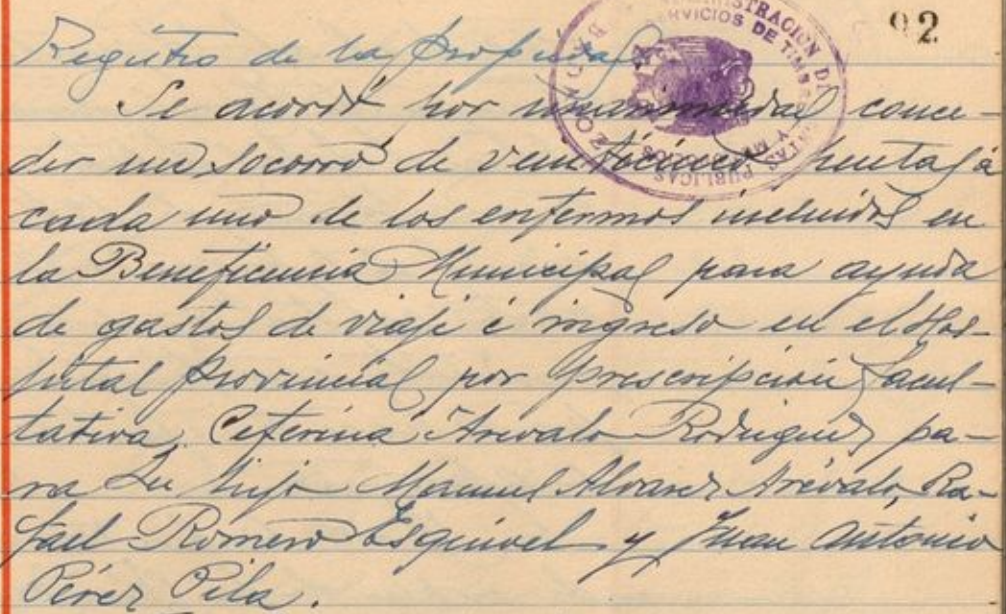 92
ADMINISTRACION DE RENTAS PUBLICAS
SERVICIOS DE TIMBRE Y M
BADAJOZ
Registro de la propiedad
Se acordó por unanimidad conce-
der un socorro de veinticinco pesetas á
cada uno de los enfermos incluidos en
la Beneficencia Municipal para ayuda
de gastos de viaje é ingreso en el Hos-
pital Provincial por prescripción facul-
tativa, Ceferina Arevalo Rodriguez pa-
ra su hijo Manuel Alvarez Arévalo, Ra-
fael Romero Esquivel y Juan Antonio
Pérez Pila.